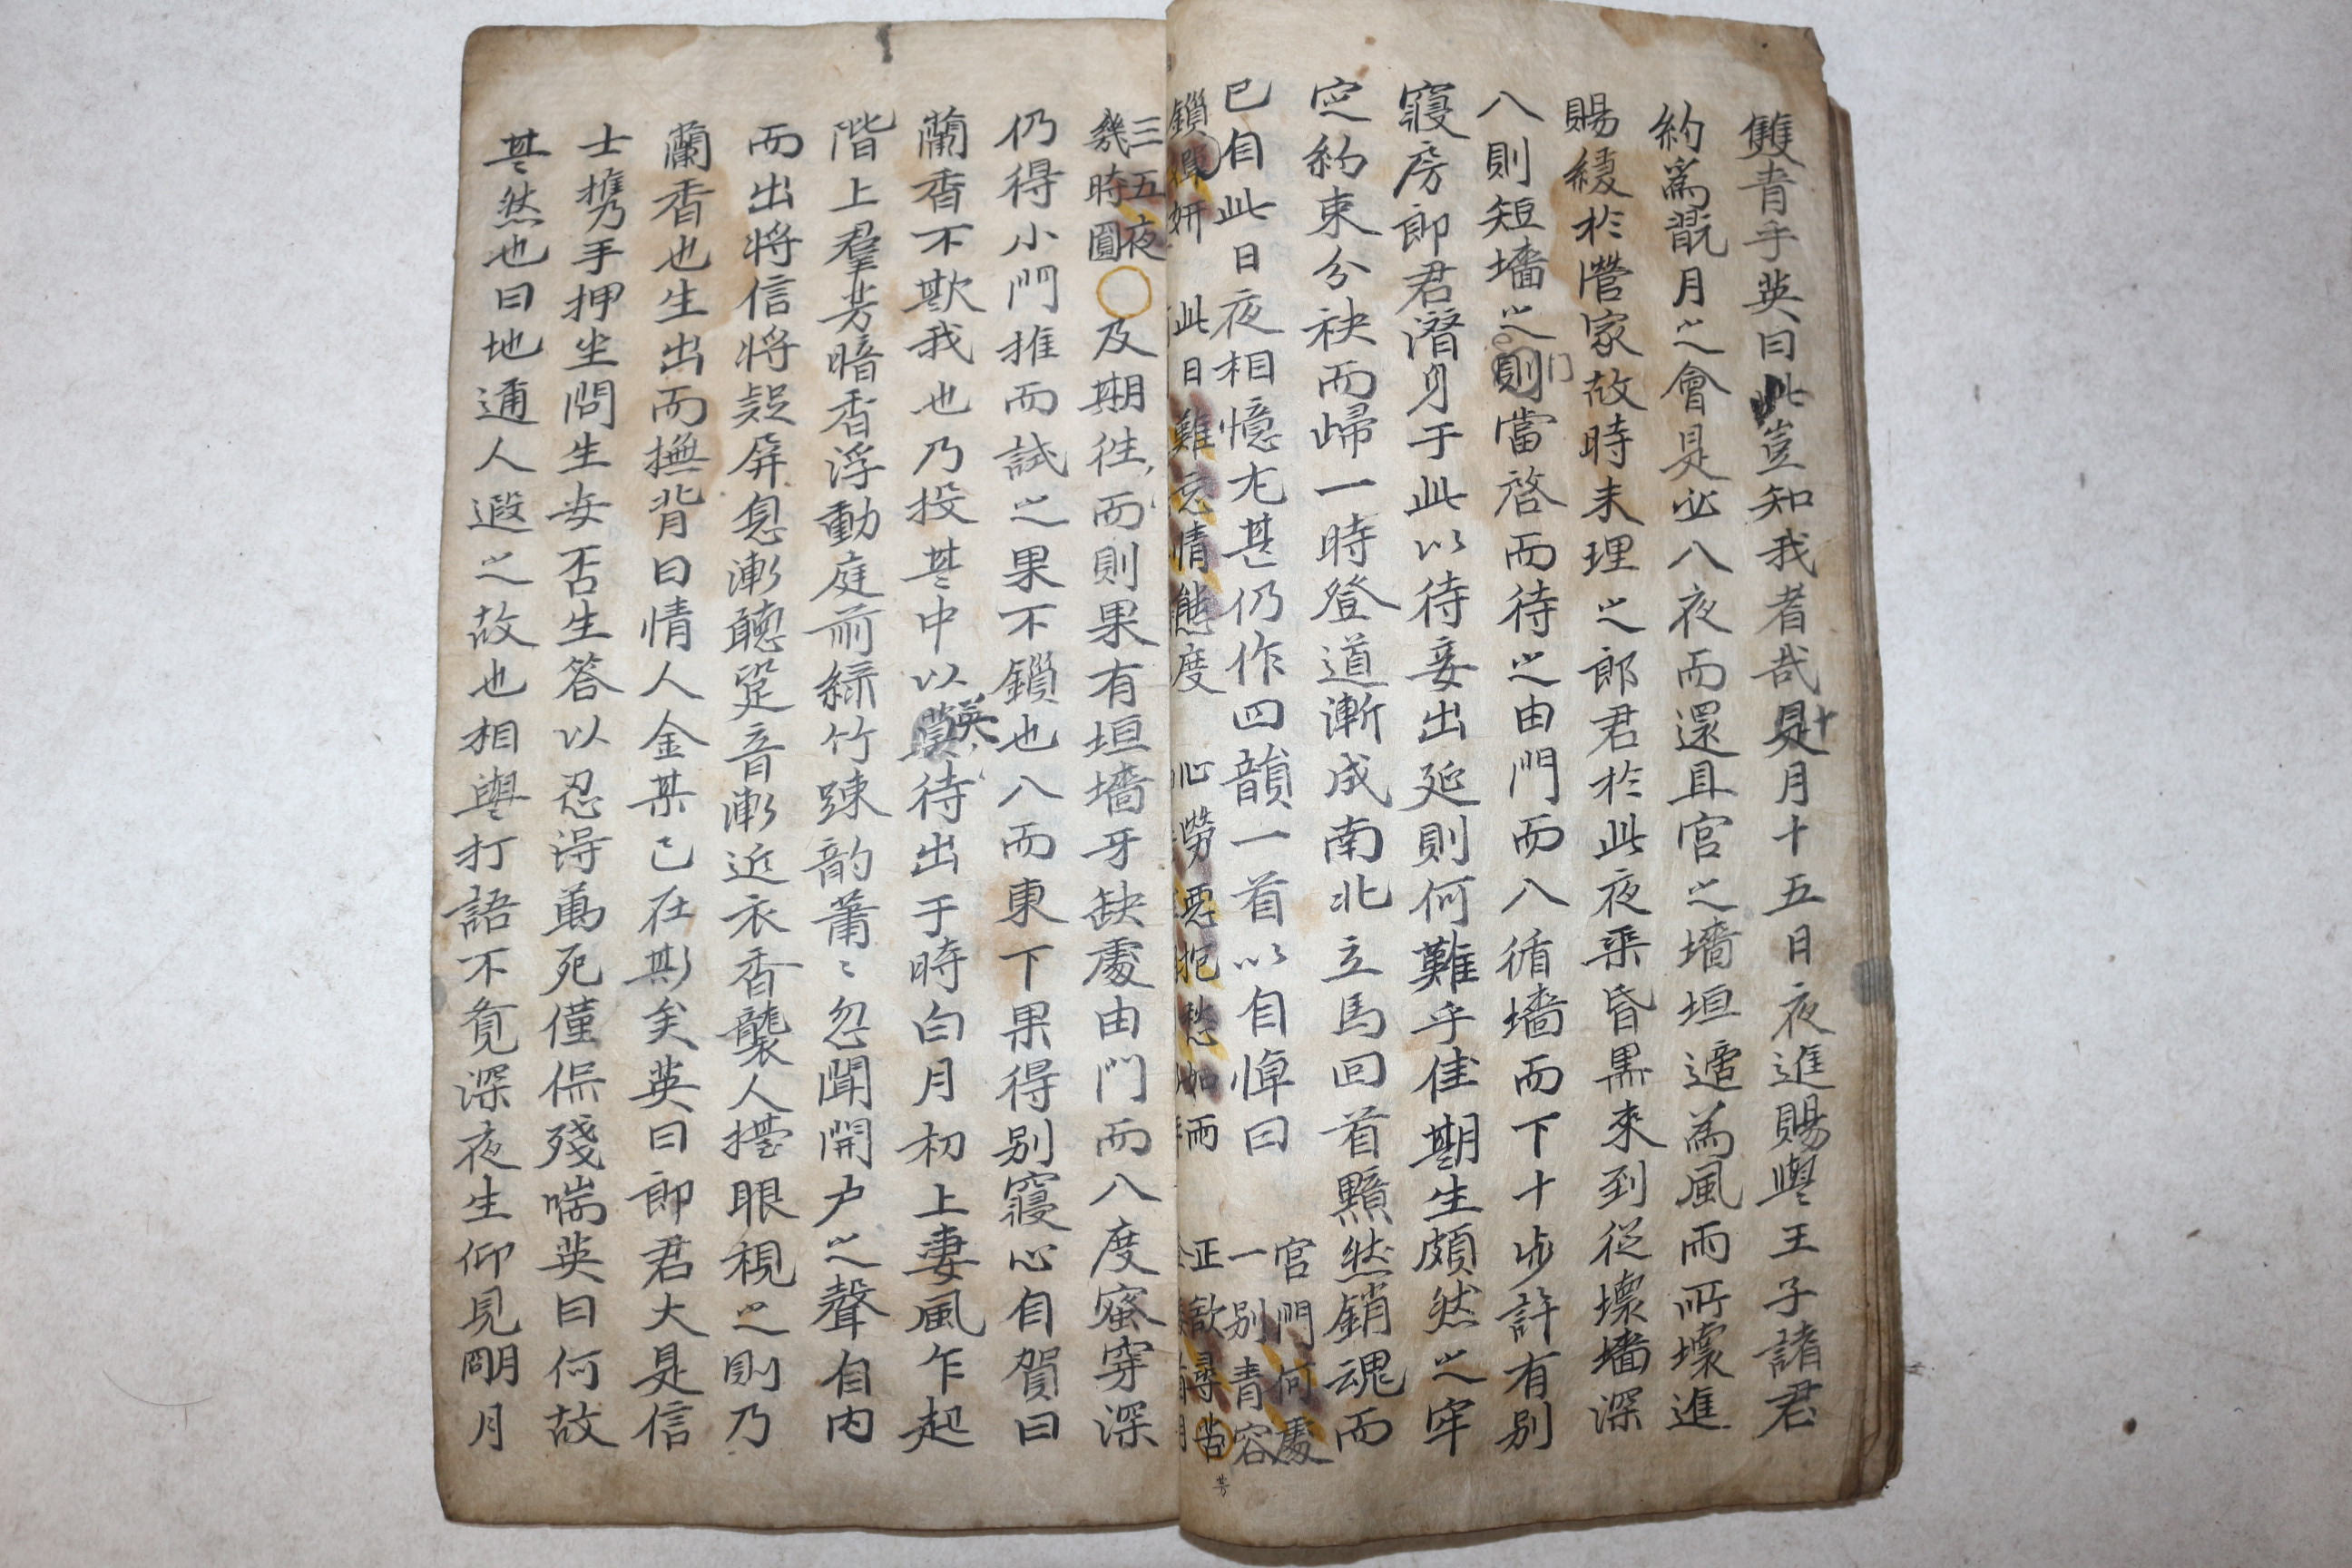 雙青乎英曰此豈知我者哉是月十五日夜進賜與王子諸君
約爲翫月之會是必八夜而還且宮之墻垣適為風雨所壞進
賜緩於營家故時未理之郎君於此夜乘昏黑來到從壞墻深
八則短墻之則當啓而待之由門而八循墻而下十步許有別
寢房郎君潛身于此以待妾出延則何難乎佳期生頗然之牢
定約束分袂而歸一時登道漸成南北立馬回首黯然銷魂而
已自此日夜相憶尤甚仍作四韻一首以自悼曰
宮門何處
一別青容
正歇尋芳
鎖嬋妍 此日難忘情態度 心勞 抱愁如雨
三五夜
幾時圓
及期徃而則果有垣墻牙缺處由門而八度窓穿深
仍得小門推而試之果不鎖也八而東下果得別寢心自賀曰
蘭香不欺我也乃投其中以英待出于時白月初上凄風乍起
階上羣芳暗香浮動庭前綠竹踈韵蕭〻忽聞開户之聲自內
而出將信將疑屏息漸聽跫音漸近衣香襲人擡眼視之則乃
蘭香也生出而撫背曰情人金某已在斯矣英曰郎君大是信
士携手押坐問生安否生答以忍得萬死僅保殘喘英曰何故
其然也曰地邇人遐之故也相與打語不覔深夜生仰見朗月